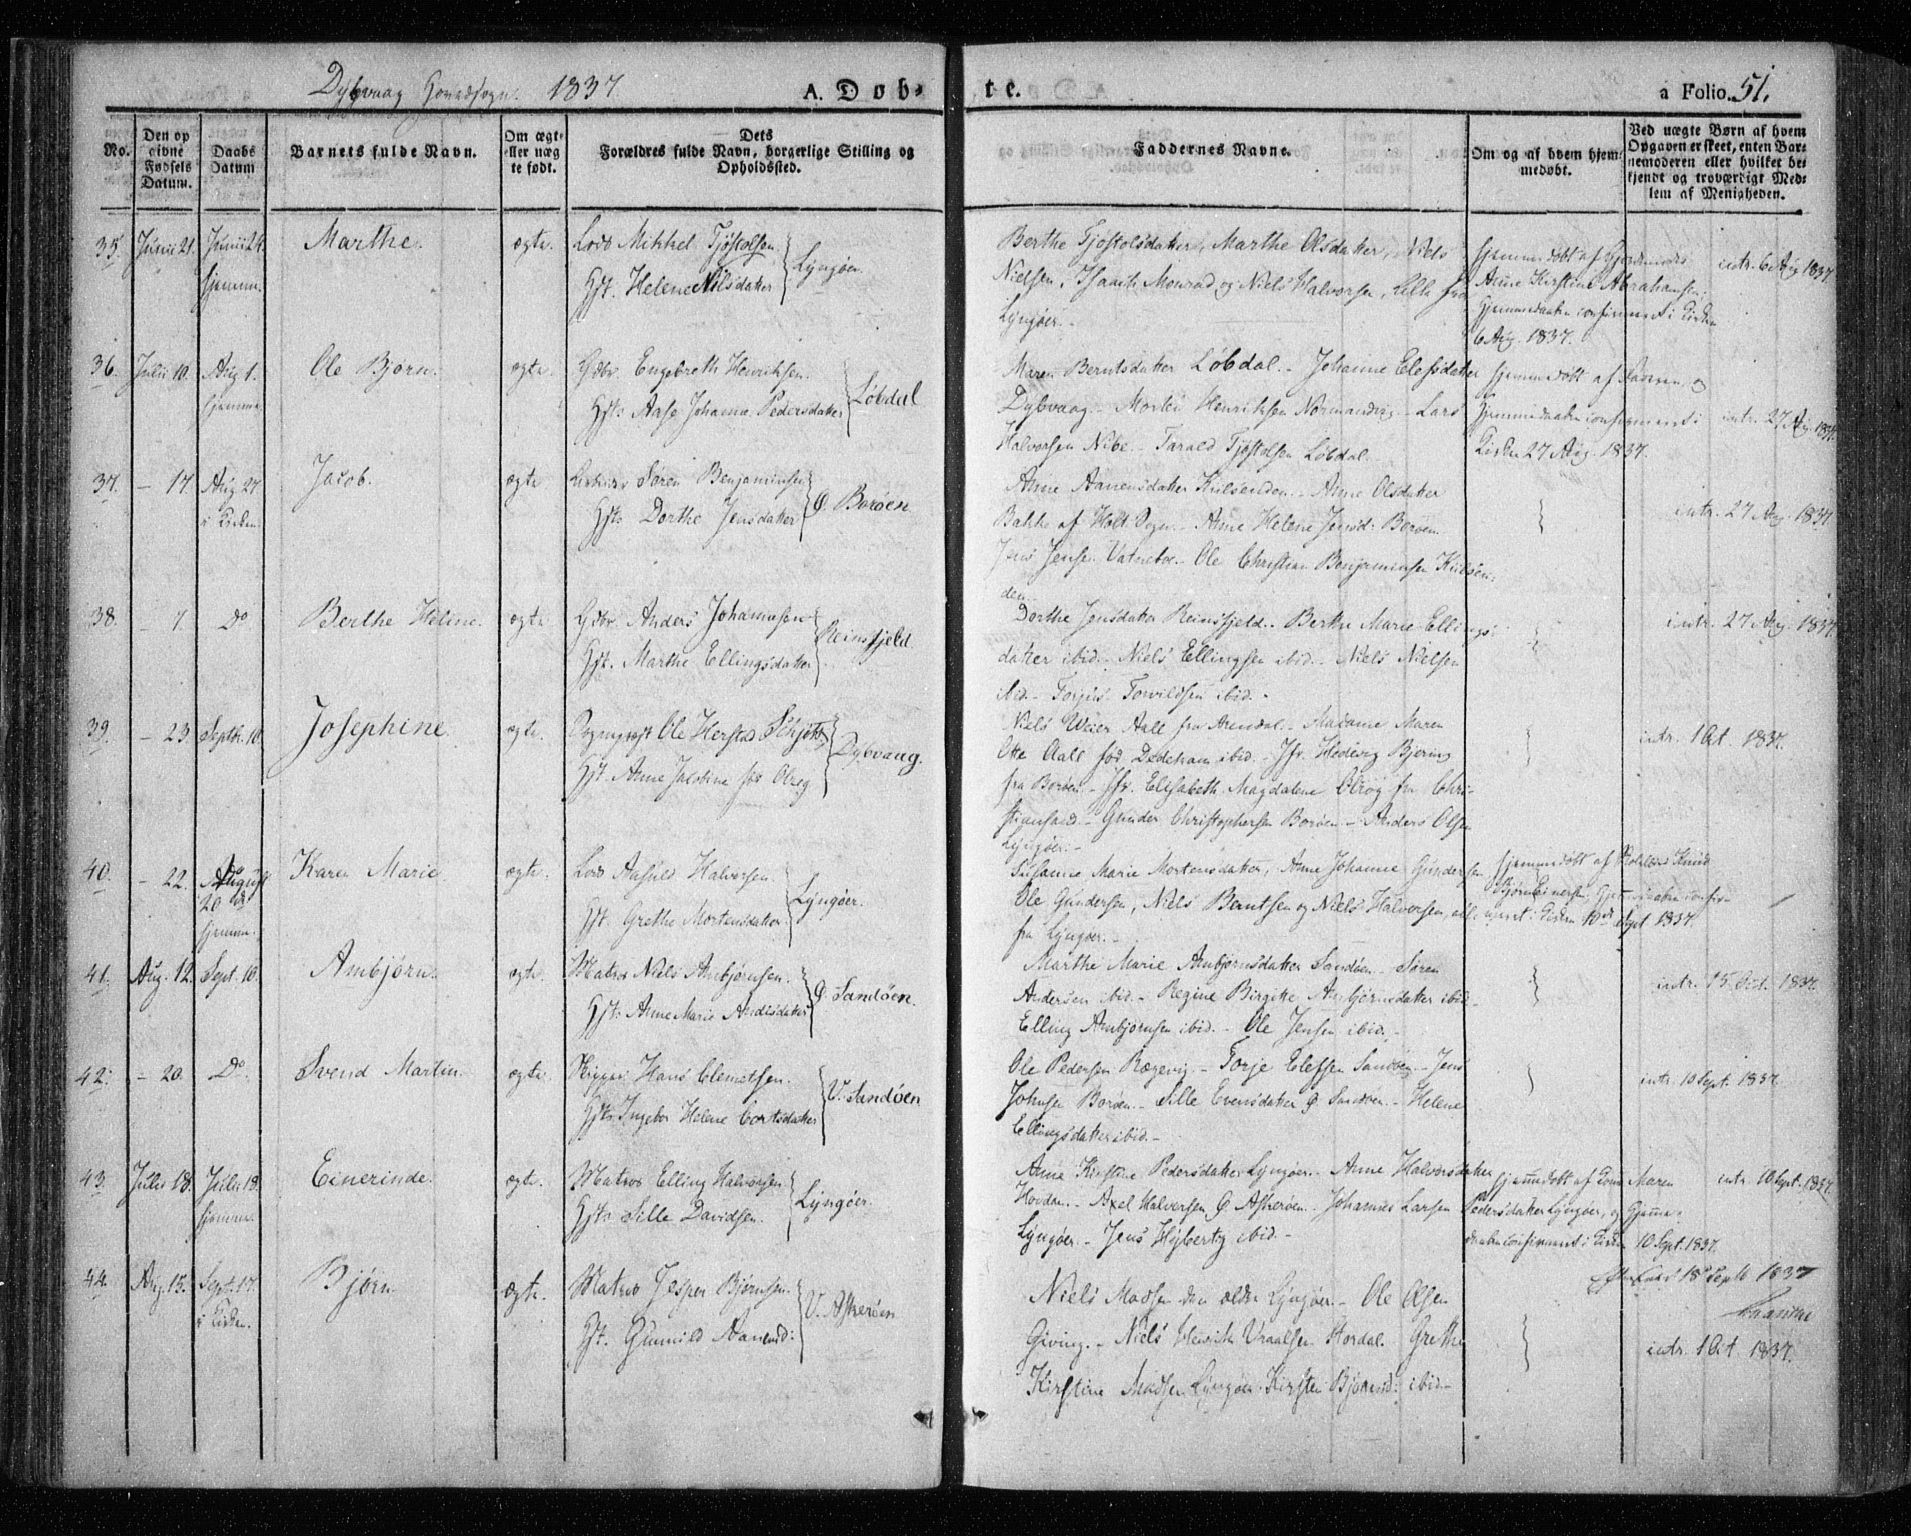 Dybvaag Hovedsogn. 1837.
A. Døb-
te.
a Folio 51.
No.
Den op
givne
Fødsels
Datum.
Daabs
Datum
Barnets fulde Navn.
Om ægt-
eller uæg
te født.
Dets
Forældres fulde Navn, borgerlige Stilling og
Opholdssted.
Faddernes Navne.
Om og af hvem hjem-
medøbt.
Ved uægte Børn af hvem
Opgaven er skeet, enten Bar-
nemoderen eller hvilket be-
kjendt og troværdigt Med-
lem af Menigheden.
35. Junii 21. Junii 24 hjemme. Marthe. ægte Lods Mikkel Tjøstolsen
Hst. Helene Nilsdatter
Lyngøer.
Berthe Tjøstolsdatter, Marthe Olsdatter, Niels
Nielsen, Isaach Monrad og Niels Halvorsen, alle fra
Lyngøer.
hjemmedøbt af
Anne Kirstine Abrahamsen,
Hjemmedaaben confirmeret i Kirken
6 Aug. 1837.
intr. 6 Aug. 1837.
36. Julii 10. Aug 1. hjemme Ole Bjørn. ægte Gdbr. Engebreth Henriksen.
Hst. Aase Johanna Pedersdatter
Løbdal
Maren Berntsdatter Løbdal. Johanne Elefsdatter
Dybvaag. Henriksen Normandvig. Lars
Halvorsen Nibe. Tarald Tjøstolsen Løbdal.
hjemmedøbt af Faderen, og
Hjemmedaaben confirmeret i
Kirken 27 Aug. 1837.
intr. 27 Aug. 1837.
37. – 17 Aug 27 i Kirken. Jacob. ægte Søren Benjaminsen
Hst. Dorthe Jensdatter
Ø. Borøen
Anne Aanensdatter Kilsenden. Anne Olsdatter
Bakke af Holt Sogn. Anne Helene Jensd: Borøen.
Jens Jensen Vatnebo. Ole Christian Benjaminsen Kilsen-
den.
intr. 27 Aug. 1837
38. – 7. Do Berthe Heline. ægte Gdbr. Anders Johannsen
Hst. Marthe Ellingsdatter
Reinsfjeld
Dorthe Jensdatter Reinsfjeld. Berthe Marie Ellings-
datter ibid. Niels Ellingsen ibid. Niels Nielsen
ibid. Torjus Torvildsen ibid.
intr. 27 Aug. 1837.
39. – 23. Septbr. 10 Josephine ægte. Sognepræst Ole Herstad Schjøtt
Hst. Anne Jacobine fød Olrog
Dybvaag.
Niels Weier Aall fra Arendal. Madame Maren
Otte Aall fød Dedekam ibid. Jfr. Hedevig Bjering
fra Borøen. Jfr. Elisabeth Magdalene Olrog fra Chri-
stiansand. Gunder Christophersen Borøen. Anders Olsen
Lyngøer.
intr. 1 Oct. 1837.
40. – 22. August 20 hjemme. Karen Marie ægte. Lods Aasuld Halvorsen.
Hst. Grethe Mortensdatter.
Lyngøer.
Susanne Marie Mortensdatter, Anne Johanne Gundersen
Ole Gundersen, Niels Berntsen og Niels Halvorsen, alle
fra Lyngøer.
hjemmedøbt af Knud
Bjørn Einersen, Hjemmedaaben confir-
meret i Kirken 10de Sept 1837.
41. Aug. 12. Sept. 10. Ambjørn. ægte Matros Niels Ambjørnsen.
Hst. Anne Marie Andersdatter
Ø. Sandøen.
Marthe Marie Ambjørnsdatter Sandøen. Søren
Andersen ibid. Regine Birgitte Ambjørnsdatter ibid.
Elling Ambjørnsen ibid. Ole Jensen ibid.
intr. 15 Oct. 1837.
42. – 20. Do Svend Martin. ægte. Rigger Hans Clemetsen.
Hst. Ingebor Helene Cortsdatter
V. Sandøen
Ole Pedersen Rægevig. Torje Elefsen Sandøen. Jens
Johnsen Borøen. Sille Evensdatter Ø. Sandøen. Helene
Ellingsdatter ibid.
intr. 10 Sept. 1837.
43. Julii 18. Julii 18. hjemme. Einerinde. ægte. Matros Elling Halvorsen
Hst. Sille Davidsen.
Lyngøer.
Anne Kirstine Pedersdatter Lyngøer. Anne Halvorsdatter
Hovdan. Axel Halvorsen Ø. Askerøen. Johannes Larsen
Lyngøer. Jens Hybertz ibid.
hjemmedøbt af Maren
Pedersdatter Lyngøer, og Hjemme-
daaben confirmeret i Kirken 10 Sept. 1837.
intr. 10 Sept. 1837.
44. Aug. 15. Sept. 17. i Kirken. Bjørn ægte. Matros Jesper Bjørnsen.
Hst. Gunnild Aanensd:
V. Askerøen
Niels Madsen den ældre Lyngøer. Ole Olsen
Giving. Niels Henrik Vraalsen Hordal. Grethe
Kirstine Madsen Lyngøer. Kirsten Bjørnsd: ibid.
18 Septb 1837
intr. 1 Oct. 1837.